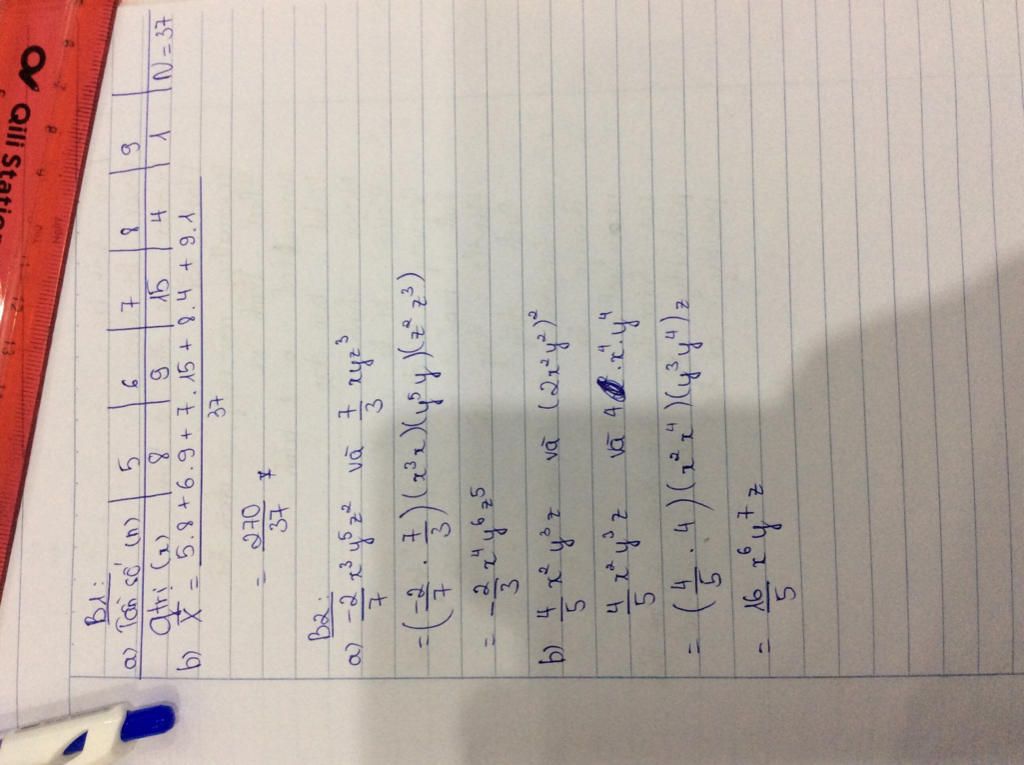 Qili Station
B1:
a) Tần số (n) | 5 | 6 | 7 | 8 | 9
gtrị (x) | 8 | 9 | 15 | 4 | 1 | N = 37
b) X̄ = (5.8 + 6.9 + 7.15 + 8.4 + 9.1) / 37
= 270/37
B2:
a) -2/7 x³y⁵z² và 7/3 xyz³
= (-2/7 . 7/3)(x³x)(y⁵y)(z²z³)
= -2/3 x⁴y⁶z⁵
b) 4/5 x²y³z và (2x²y²)²
4/5 x²y³z và 4 . x⁴.y⁴
= (4/5 . 4)(x²x⁴)(y³y⁴)z
= 16/5 x⁶y⁷z